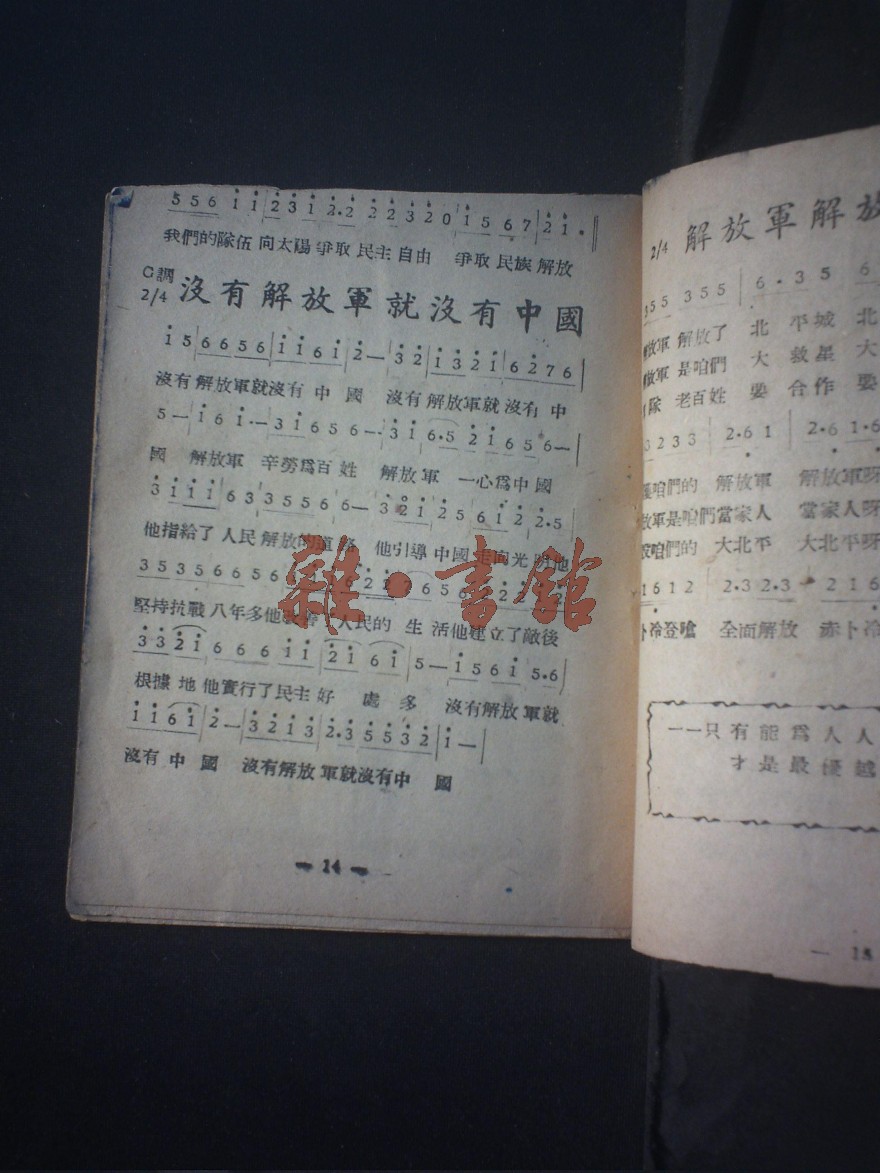 5 5 6 1 1 | 2 3 1 2.2 2 2 3 2 0 1 5 6 7 | 2 1 .
我們的隊伍 向太陽 爭取 民主 自由 爭取 民族 解放
G調
2/4 沒有解放軍就沒有中國
1 5 | 6 6 5 6 | 1 1 6 1 | 2 — | 3 2 | 1 3 2 1 | 6 2 7 6 |
沒有 解放軍就沒有 中 國 沒有 解放軍就 沒有 中
5 — | 1 6 1 · — 3 1 | 6 5 6 — · 3 1 | 6.5 2 1 6 5 6 — |
國 解放軍 辛勞爲百姓 解放軍 一心爲中國
3 1 1 1 | 6 3 3 5 5 6 6 — · 3 2 1 2 5 | 6 1 2 | 2.5
他指給了 人民 解放的道路 他引導 中國 走向光明他
3 5 3 5 6 6 5 6
堅持抗戰 八年多他 人民的 生 活他建立了敵後
3 3 2 1 | 6 6 6 1 1 | 2 1 6 1 | 5 — | 1 5 6 1 | 5.6
根據 地 他實行了民主好 處 多 沒有解放軍就
1 1 6 1 | 2 — | 3 2 1 3 | 2.3 5 5 3 2 | 1 — |
沒有 中 國 沒有解放 軍就沒有中 國
— 14 —
雜·書館
2/4 解放軍解放
3 5 5 3 5 5 | 6 . 3 5 6
放軍 解放了 北 平城 北
放軍 是咱們 大 救星 大
隊 老百姓 要 合作 要
3 2 3 3 | 2.6 1 | 2.6 1.6
咱們的 解放軍 解放軍呀
放軍是咱們當家人 當家人呀
咱們的 大北平 大北平呀
1 6 1 2 2.3 2.3 2 1 6
卜冷登嗆 全面解放 赤卜冷
一一只有能爲人人
才是最優越
— 15